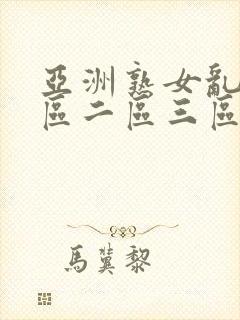 亞洲熟女亂
區二區三區
馬冀黎